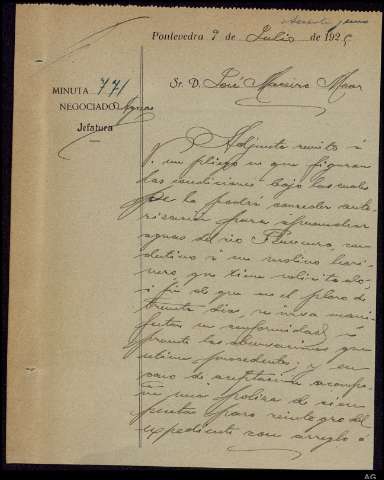 Pontevedra 9 de Julio de 192
MINUTA 771
NEGOCIADO Aguas
Jefatura
Sr. D. José Moreira
Adjunto remito á
V. un pliego en que figuran
las condiciones bajo las cuales
se le podrá conceder auto-
rización para aprovechar
aguas del río con
destino á un molino hari-
nero, que tiene solicitado,
á fin de que en el plazo de
treinta días, se sirva mani-
festar su conformidad, ó
presente las observaciones que
estime procedentes; y en
caso de aceptación acompa-
ñe una póliza de
pesetas para reintegro del
expediente con arreglo á
AG